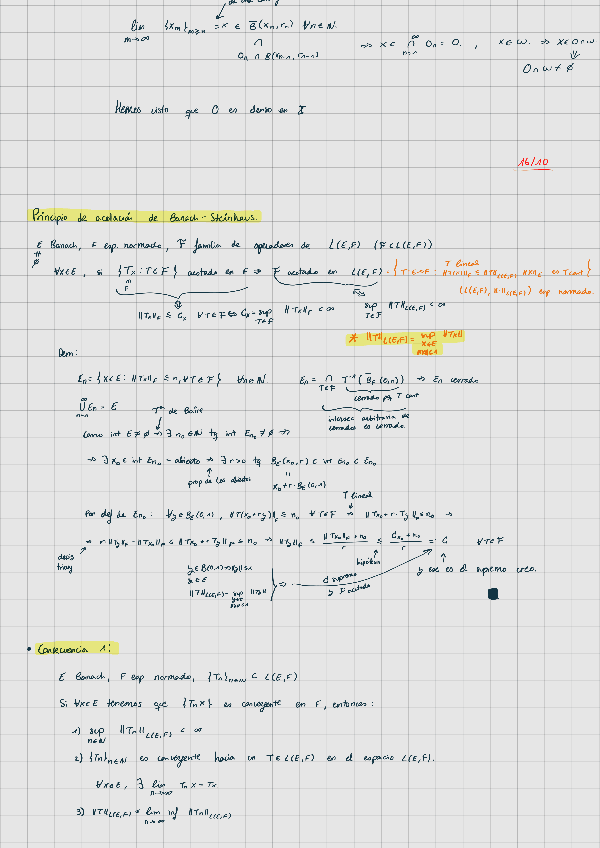 lim {x_m}_{m≥n} = x ∈ B̄(x_n, r_n) ∀n∈ℕ.
m→∞
∩
O_n ∩ B(x_{n-1}, r_{n-1})
⇒ x ∈ ⋂_{n=1}^∞ O_n = O. , x∈W. ⇒ x∈O∩W
⇓
O∩W ≠ ∅
Hemos visto que O es denso en X
16/10
Principio de acotación de Banach-Steinhaus.
E Banach, F esp. normado, F familia de operadores de L(E,F) (F⊂L(E,F))
≠ ∅
∀x∈E, si {Tx : T∈F} acotado en F ⇒ F acotado en L(E,F)
T lineal
(L(E,F), ‖·‖_{L(E,F)}) esp normado.
‖Tx‖_F ≤ C_x ∀T∈F ⇔ C_x = sup_{T∈F} ‖Tx‖_F < ∞ sup_{T∈F} ‖T‖_{L(E,F)} < ∞
* ‖T‖_{L(E,F)} = sup_{x∈E, ‖x‖≤1} ‖Tx‖
Dem:
E_n = {x∈E : ‖Tx‖_F ≤ n, ∀T∈F} ∀n∈ℕ E_n = ⋂_{T∈F} T⁻¹(B̄_F(0,n)) ⇒ E_n cerrado
cerrado pq T cont
⋃_{n=1}^∞ E_n = E
intersec arbitraria de
cerrados es cerrado.
Tᵐᵃ de Baire
Como int E ≠ ∅ ⇒ ∃ n_0∈ℕ tq int E_{n_0} ≠ ∅ ⇒
⇒ ∃ x_0 ∈ int E_{n_0} - abierto ⇒ ∃ r>0 tq B_E(x_0,r) ⊂ int E_{n_0} ⊂ E_{n_0}
prop de los abiertos
x_0 + r·B_E(0,1)
T lineal
Por def de E_{n_0} : ∀y∈B_E(0,1), ‖T(x_0+ry)‖_F ≤ n_0 ∀T∈F ⇒ ‖Tx_0 + r·Ty‖_F ≤ n_0 ⇒
⇒ r‖Ty‖_F - ‖Tx_0‖_F ≤ ‖Tx_0 + r·Ty‖_F ≤ n_0 ⇒ ‖Ty‖_F ≤ (‖Tx_0‖_F + n_0)/r ≤ (C_{x_0} + n_0)/r =: C ∀T∈F
desig
triang
hipótesis
y ese es el supremo creo.
y∈B(0,1) ⇒ ‖y‖≤1
y∈E
‖T‖_{L(E,F)} = sup ‖Ty‖
⇒ ...
d supremo
y F acotado
■
• Consecuencia 1:
E Banach, F esp normado, {T_n}_{n∈ℕ} ⊂ L(E,F)
Si ∀x∈E tenemos que {T_n x} es convergente en F, entonces:
1) sup_{n∈ℕ} ‖T_n‖_{L(E,F)} < ∞
2) {T_n}_{n∈ℕ} es convergente hacia un T∈L(E,F) en el espacio L(E,F).
∀x∈E, ∃ lim_{n→∞} T_n x = Tx
3) ‖T‖_{L(E,F)} ≤ lim inf_{n→∞} ‖T_n‖_{L(E,F)}